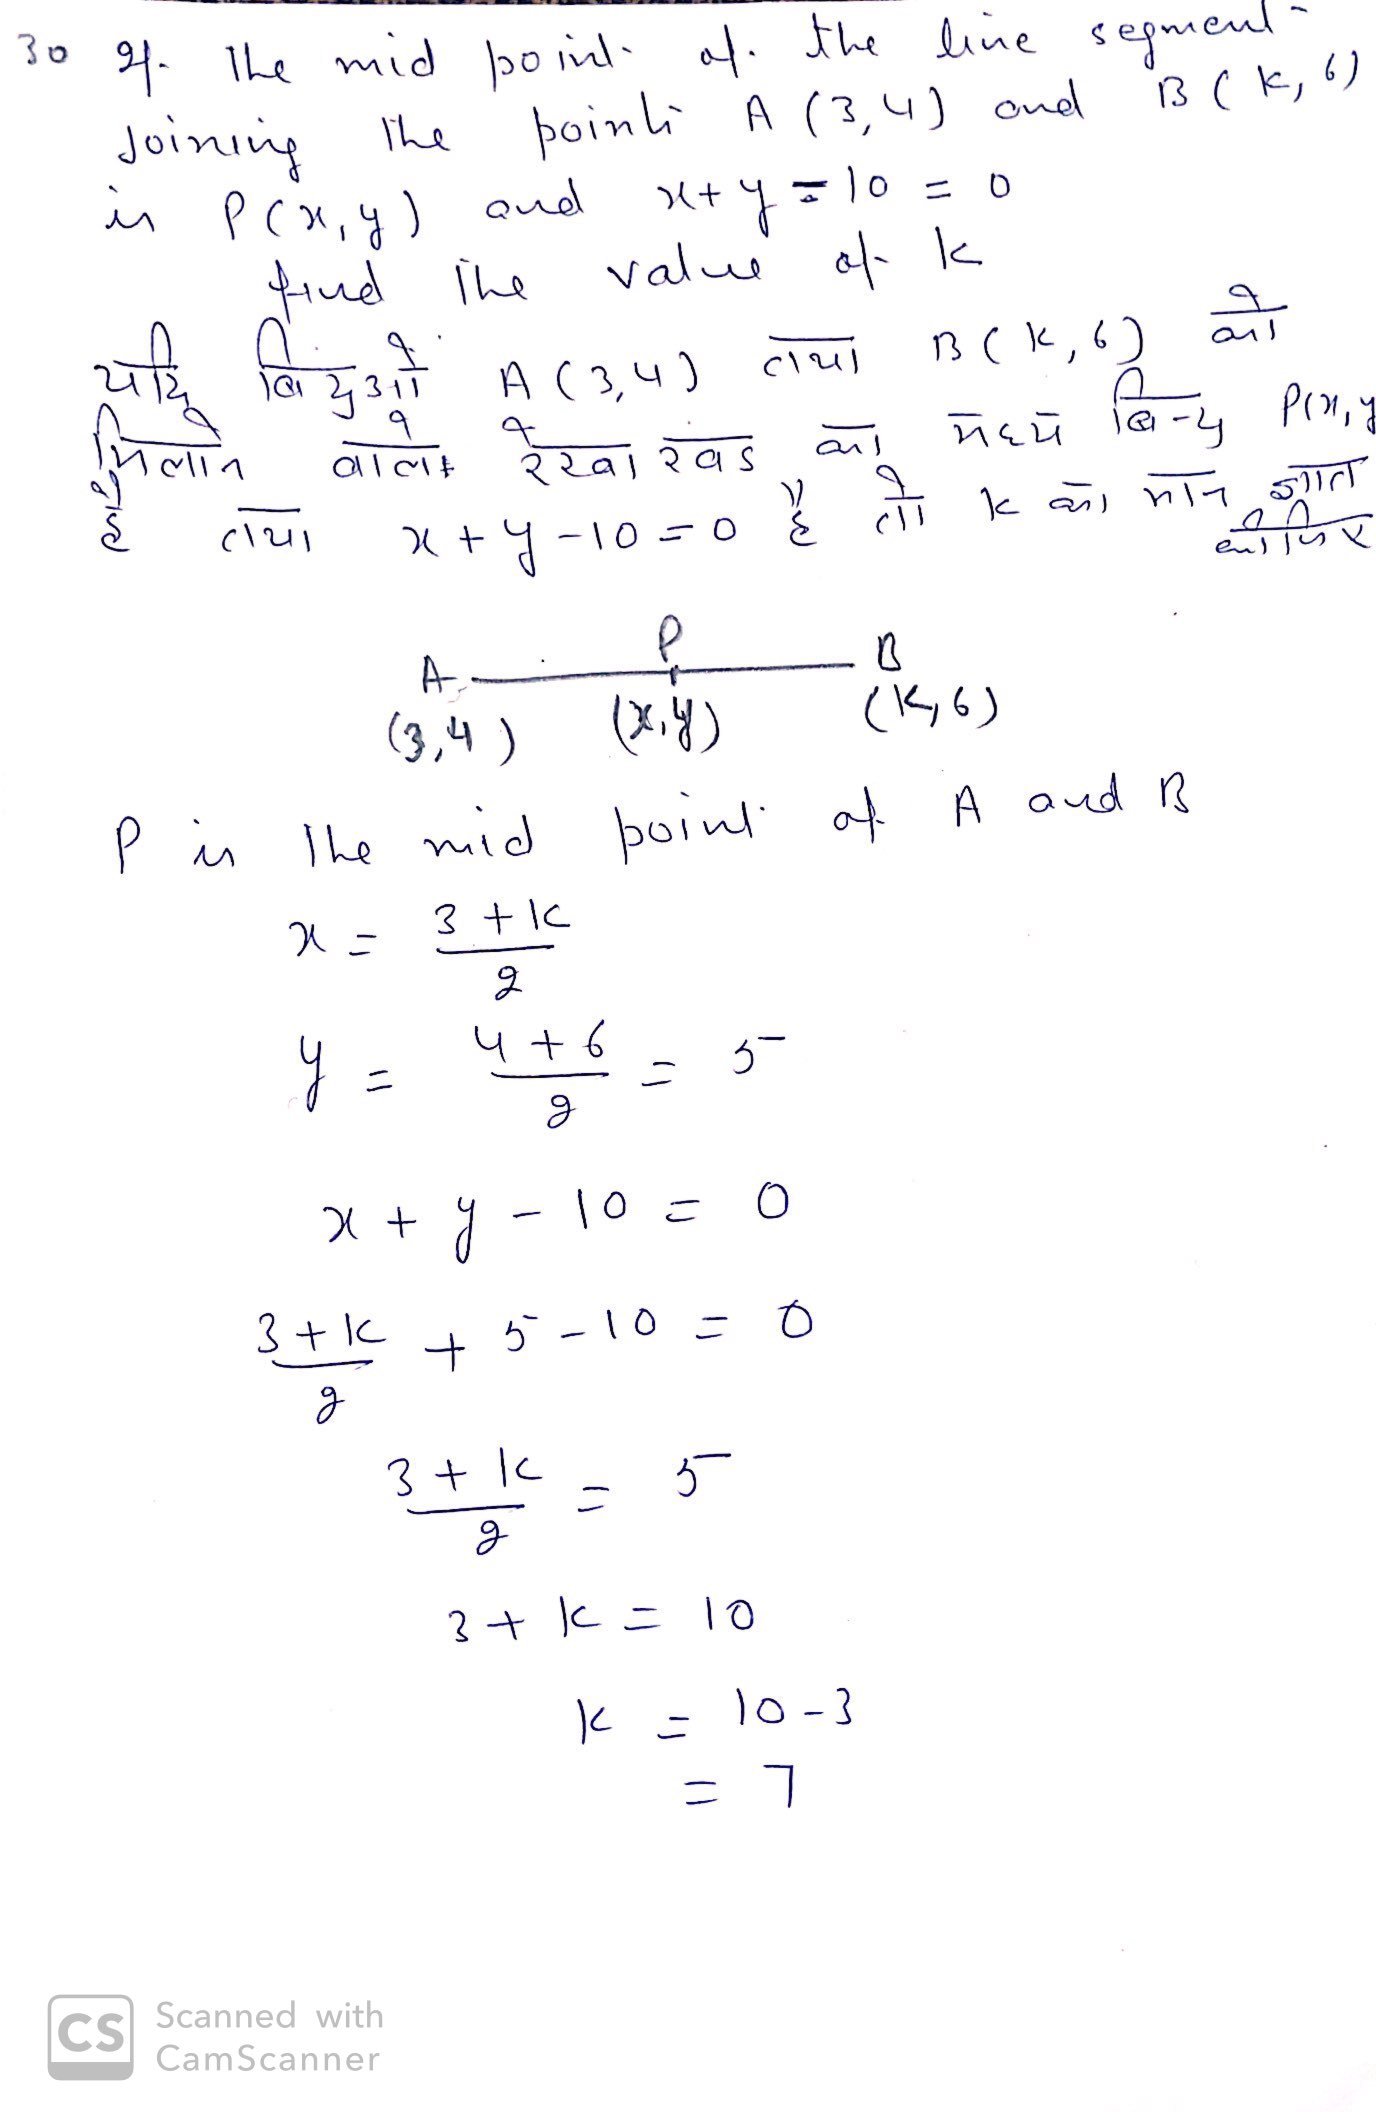 30 If the mid point of the line segment
Joining the points A (3,4) and B (k, 6)
is P(x,y) and x+y-10 = 0
find the value of k
यदि बिन्दुओं A (3,4) तथा B (k,6) को
मिलाने वाले रेखा खंड का मध्य बिन्दु P(x,y
है तथा x+y-10=0 है तो k का मान ज्ञात
कीजिए
A P B
(3,4) (x,y) (k,6)
P is the mid point of A and B
x = 3+k/2
y = 4+6/2 = 5
x + y - 10 = 0
3+k/2 + 5-10 = 0
3+k/2 = 5
3+k = 10
k = 10-3
= 7
CS Scanned with
CamScanner